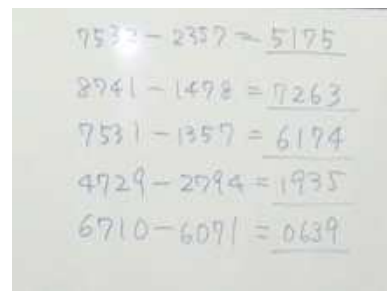 7532 - 2357 = 5175
8741 - 1478 = 7263
7531 - 1357 = 6174
4729 - 2794 = 1935
6710 - 6071 = 0639